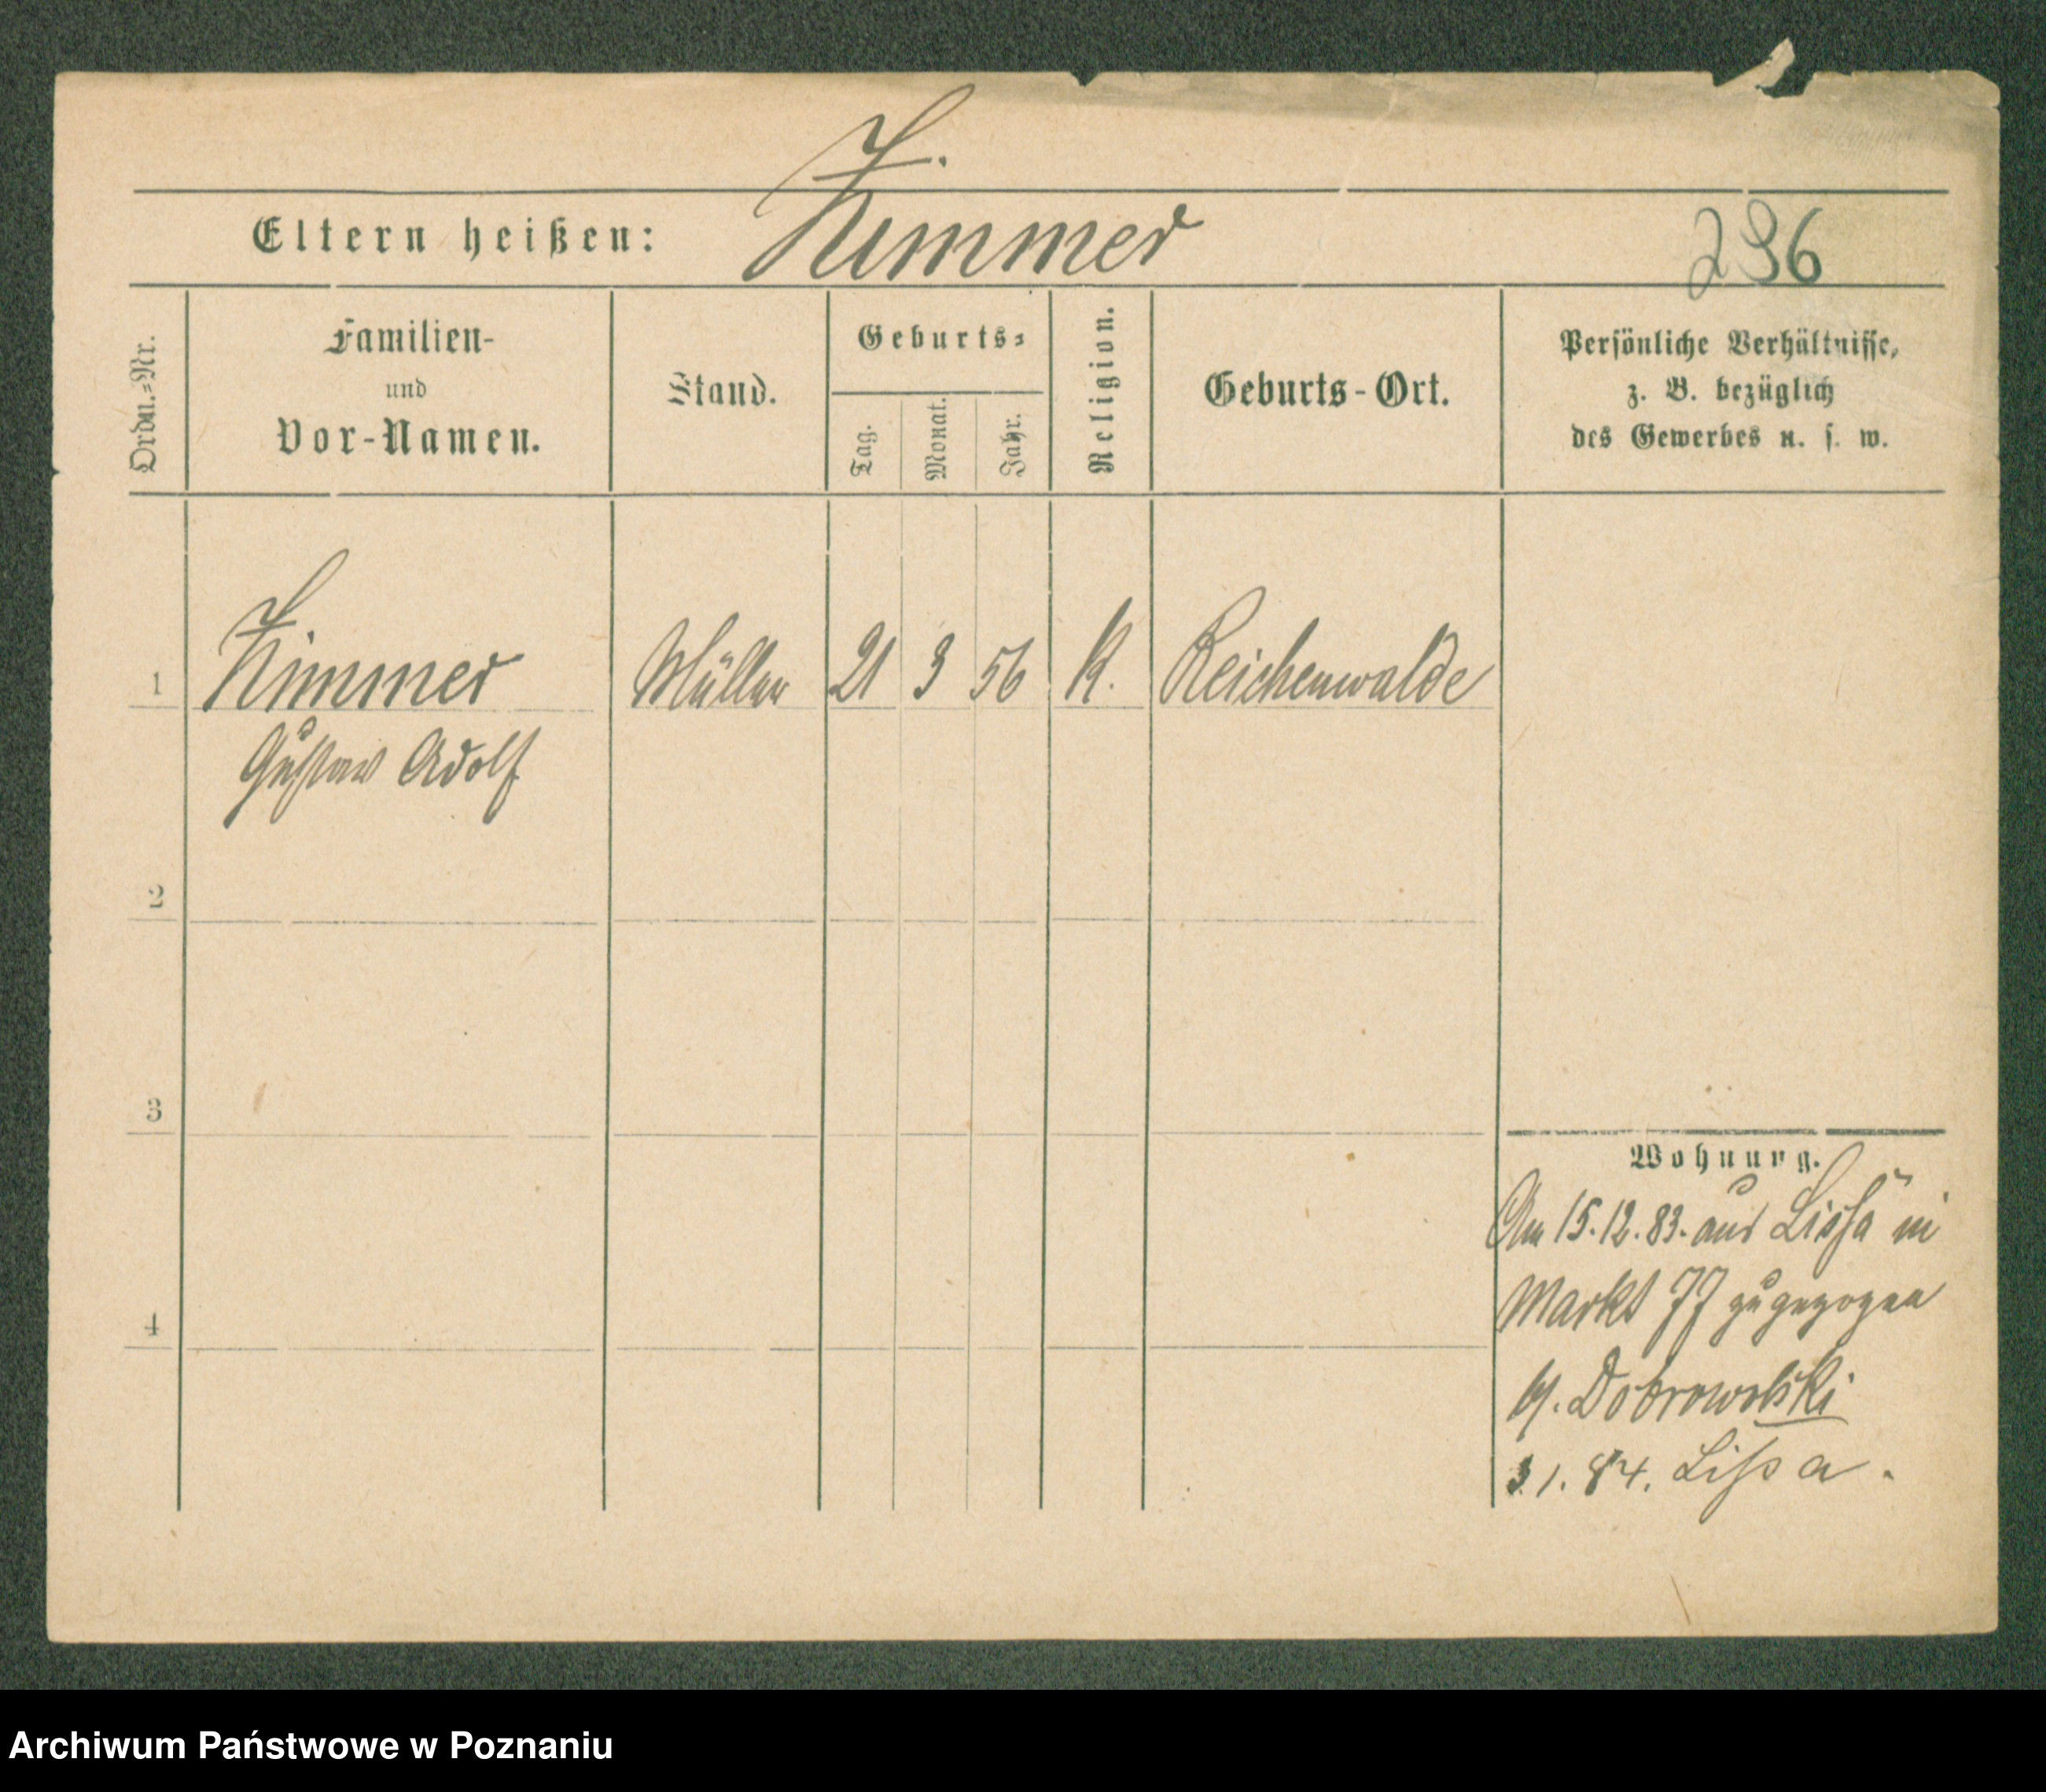 Z.
Eltern heißen: Zimmer 296
Ordn.-Nr.
Familien-
und
Vor-Namen.
Stand.
Geburts-
Tag.
Monat.
Jahr.
Religion.
Geburts-Ort.
Persönliche Verhältnisse,
z. B. bezüglich
des Gewerbes u. s. w.
1 Zimmer Müller 21 3 56 K. Reichenwalde
Gustav Adolf
2
3
4
Wohnung.
Am 15.12.83. aus Lissa in
Markt 77 zugezogen
b/. Dobrowolski
3.1.84. Lissa.
Archiwum Państwowe w Poznaniu